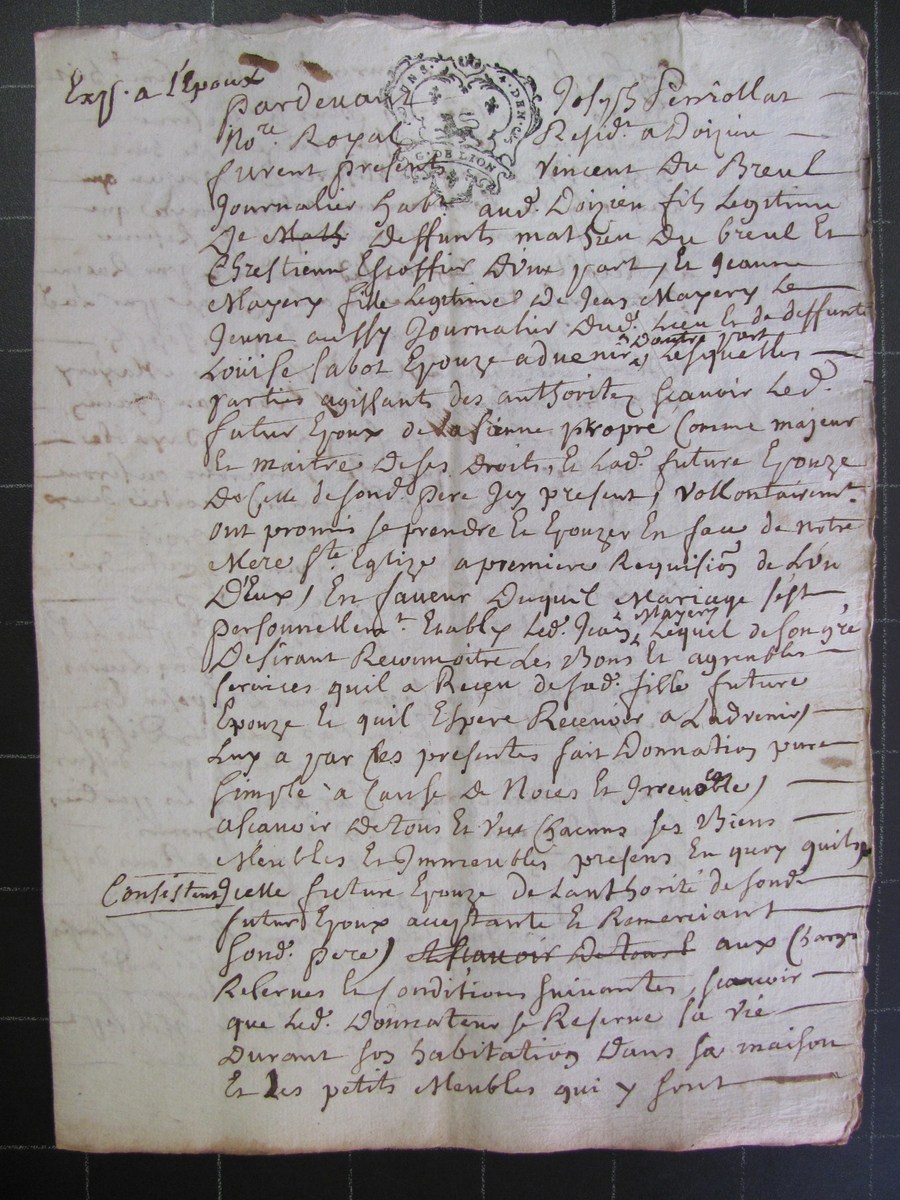 Exp. a l'Epoux
Pardevant Joseph Perriollat
No.re Royal Resid.t a Doizieu
furent presents Vincent Du Breul
Journalier hab.t aud. Doizieu fils Legitime
De Math Deffunts mathieu Du breul Et
Chrestienne Escoffier D'une part, Et Jeanne
Mayery fille Legitime De Jean Mayery Le
Jeune aussy Journalier Dud. Lieu Et de deffunte
Louise sabot Epouze advenir D'autre part, Lesquelles
parties agissants des authoritez scavoir Led.
futur Epoux de La sienne propre Comme majeur
Et maitre De ses Droits, Et Lad. future Epouze
De Celle de sond. pere Icy present, Vollontairem.t
ont promis se prendre Et Epouzer En face de notre
Mere s.te Eglize a premiere Requision de L'un
D'Eux, En faveur Duquel Mariage s'est
personnellem.t Etably Led. Jean Mayery Lequel de son gré
Desirant Reconnoitre Les Bons Et agreables
services quil a Reçeu de sad. fille future
Epouze Et quil Espere Recevoir a Ladvenir,
Luy a par ses presentes fait Donnation pure
simple a Cause De Noces Et Irrevoble,
ascavoir De tous Et Uns Chacuns ses Biens
Meubles Et Immeubles presens En quoy quils
Consistent Icelle future Epouze de Lauthorité de sond.
futur Epoux acceptante Et Remerciant
sond. pere, Ascavoir De tous aux Charges
Reserves Et Conditions suivantes, scavoir
que Led. Donnateur se Reserve sa vie
Durant son habitation Dans sa maison
Et Les petits Meubles qui y sont
G. DE LION